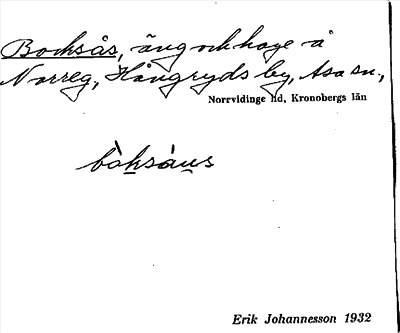 Bocksås, äng och hage å
Norreg, Hångryds by, Asa sn,
Norrvidinge hd, Kronobergs län
bòksáus
Erik Johannesson 1932